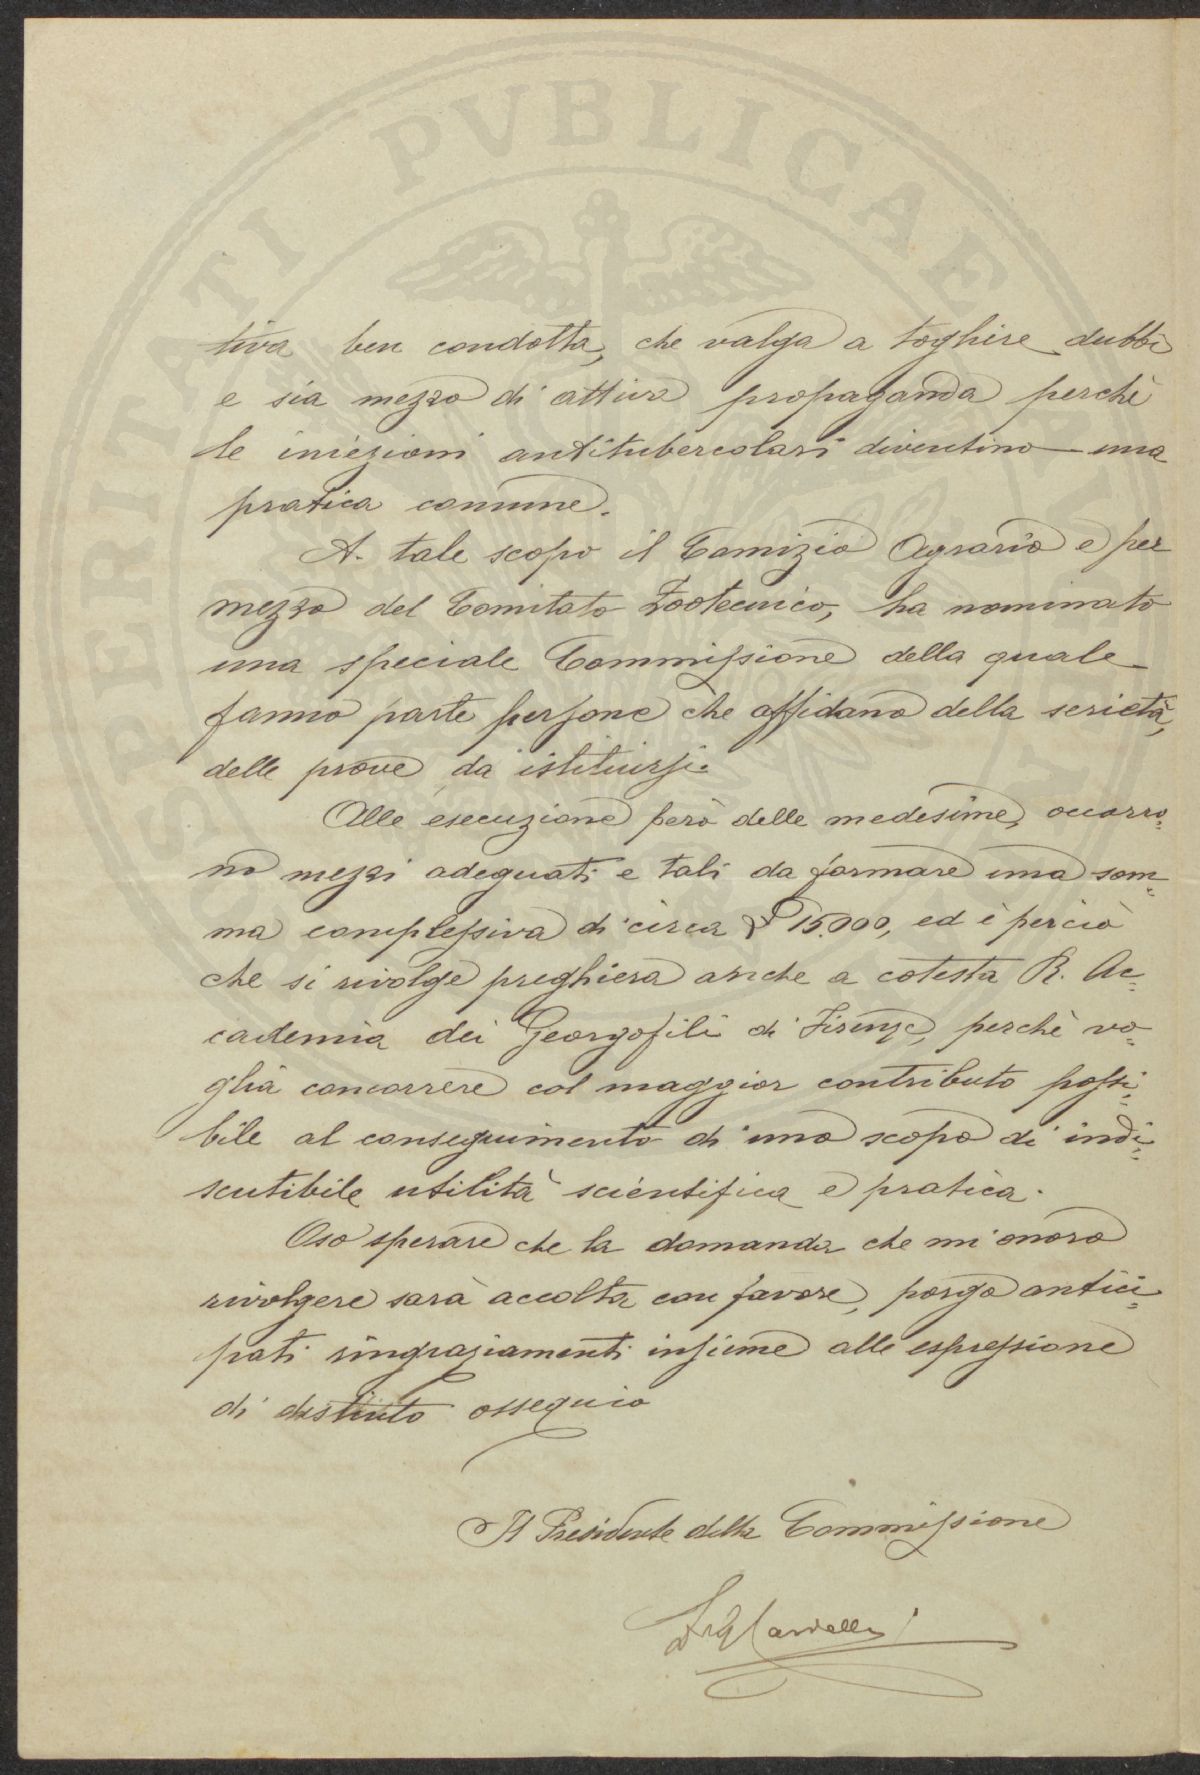 PROSPERITATI PVBLICAE
tiva ben condotta, che valga a togliere dubbi
e sia mezzo di attiva propaganda perchè
le iniezioni antitubercolari diventino una
pratica comune.
A tale scopo il Comizio Agrario e per
mezzo del Comitato Zootecnico, ha nominato
una speciale Commissione della quale
fanno parte persone che affidano della serietà,
delle prove da istituirsi.
Alle esecuzione però delle medesime, occorro=
no mezzi adeguati e tali da formare una som=
ma complessiva di circa £ 15.000, ed è perciò
che si rivolge preghiera anche a cotesta R. Ac=
cademia dei Georgofili di Firenze, perchè vo=
glia concorrere col maggior contributo possi=
bile al conseguimento di uno scopo di indi=
scutibile utilità scientifica e pratica.
Oso sperare che la domanda che mi onoro
rivolgere sarà accolta con favore, porgo antici=
pati ringraziamenti insieme alle espressione
di distinto ossequio
Il Presidente della Commissione